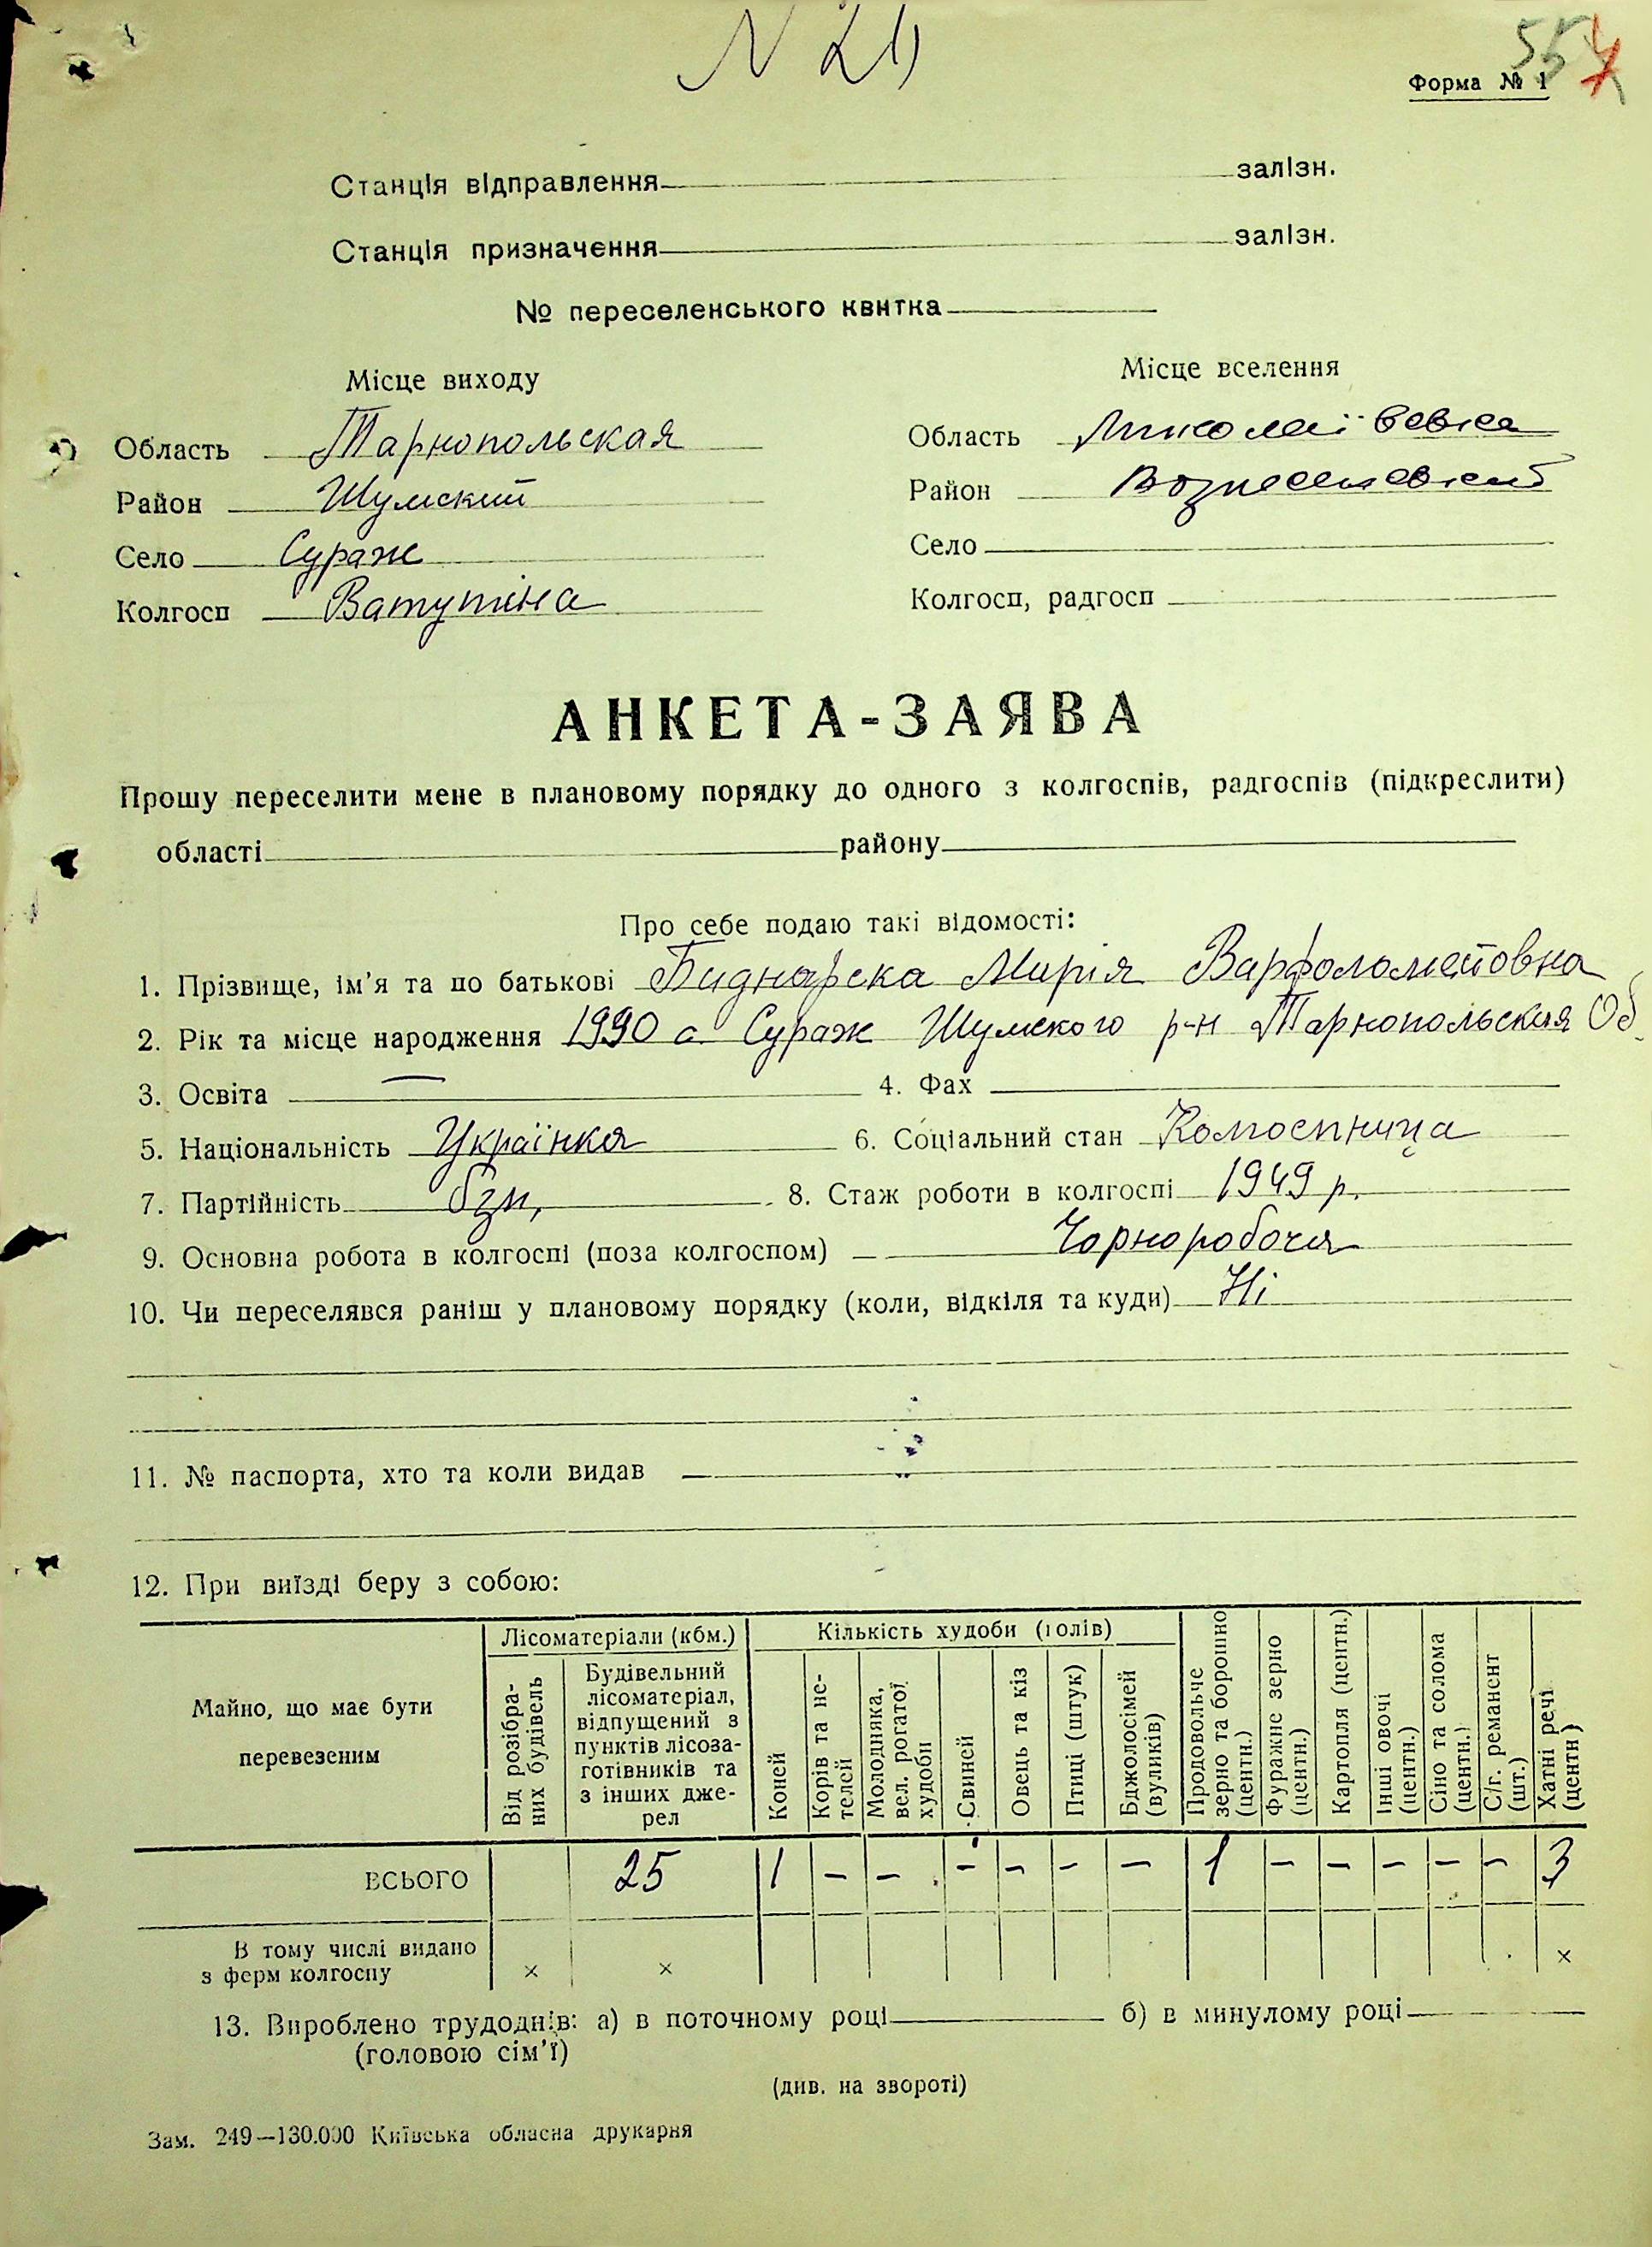 N 21
55
Форма № 1
Станція відправлення залізн.
Станція призначення залізн.
№ переселенського квитка
Місце виходу Місце вселення
Область Тарнопольская Область Миколаївська
Район Шумский Район Вознесенський
Село Сураж Село
Колгосп Ватутіна Колгосп, радгосп
АНКЕТА-ЗАЯВА
Прошу переселити мене в плановому порядку до одного з колгоспів, радгоспів (підкреслити)
області району
Про себе подаю такі відомості:
1. Прізвище, ім'я та по батькові Биднарска Мирія Варфоломейовна
2. Рік та місце народження 1990 с. Сураж Шумского р-н Тарнопольская Об.
3. Освіта — 4. Фах
5. Національність Українка 6. Соціальний стан Колгоспниця
7. Партійність бзп, 8. Стаж роботи в колгоспі 1949 р.
9. Основна робота в колгоспі (поза колгоспом) Чорноробоча
10. Чи переселявся раніш у плановому порядку (коли, відкіля та куди) Ні
11. № паспорта, хто та коли видав
12. При виїзді беру з собою:
Майно, що має бути перевезеним
Лісоматеріали (кбм.)
Від розібраних будівель
Будівельний лісоматеріал, відпущений з пунктів лісозаготівників та з інших джерел
Кількість худоби (голів)
Коней
Корів та нетелей
Молодняка, вел. рогатої худоби
Свиней
Овець та кіз
Птиці (штук)
Бджолосімей (вуликів)
Продовольче зерно та борошно (центн.)
Фуражне зерно (центн.)
Картопля (центн.)
Інші овочі (центн.)
Сіно та солома (центн.)
С/г. реманент (шт.)
Хатні речі (центн)
ВСЬОГО 25 1 – – – – – – 1 – – – – – 3
В тому числі видано з ферм колгоспу × × ×
13. Вироблено трудоднів: а) в поточному році б) в минулому році
(головою сім'ї)
(див. на звороті)
Зам. 249—130.000 Київська обласна друкарня